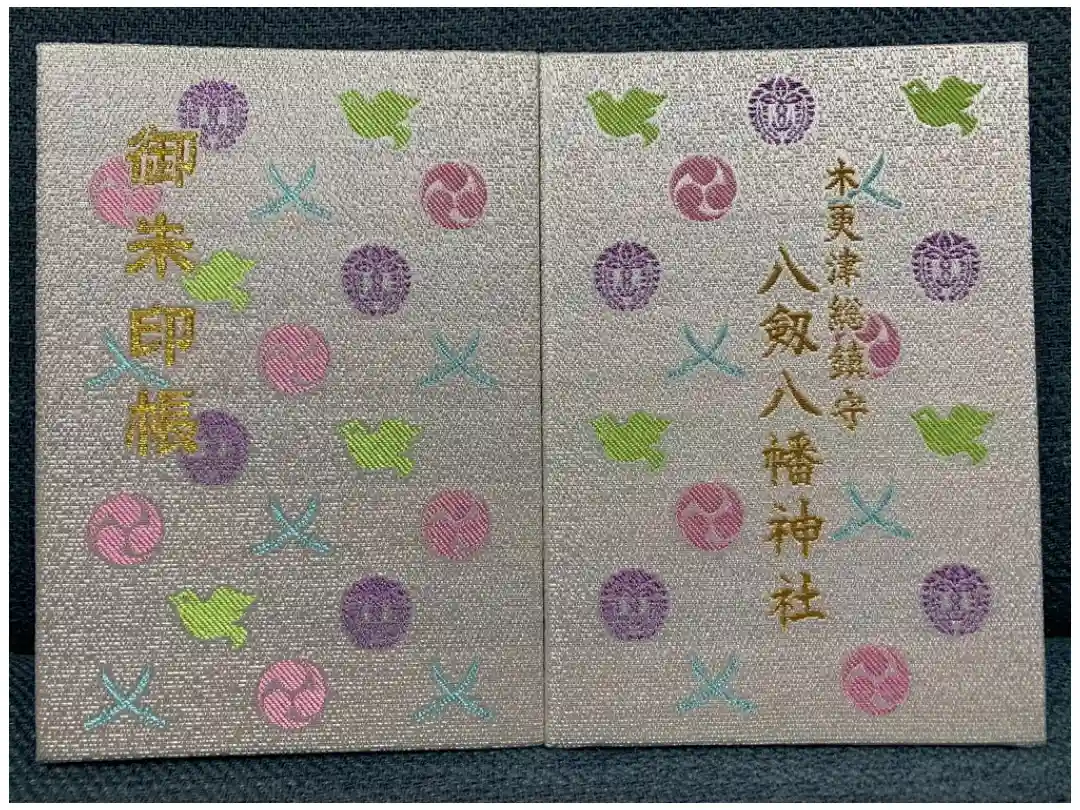 御朱印帳
木更津総鎮守
八剱八幡神社